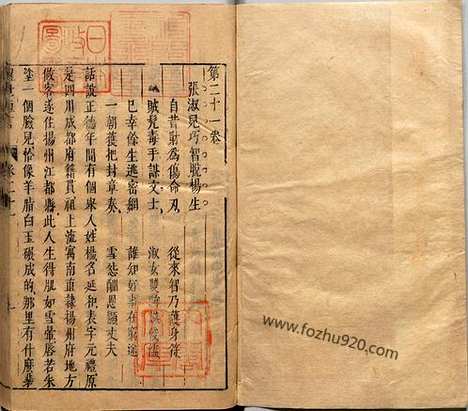 第二十一卷
張淑兒巧智脫楊生
自昔財為傷命刃 從來智乃護身符
賊髠毒手謀文士 淑女雙眸識俊儒
已幸餘生逃密網 誰知好事在窮途
一朝獲把封章奏 雪怨酬恩顯丈夫
話說正德年間有個舉人姓楊名延和表字元禮原
是四川成都府籍貫祖上流寓南直隸揚州府地方
做客遂住揚州江都縣此人生得肌如雪暈唇若朱
塗一個臉兒恰像羊脂白玉碾成的那里有什麼
www.fozhu920.com